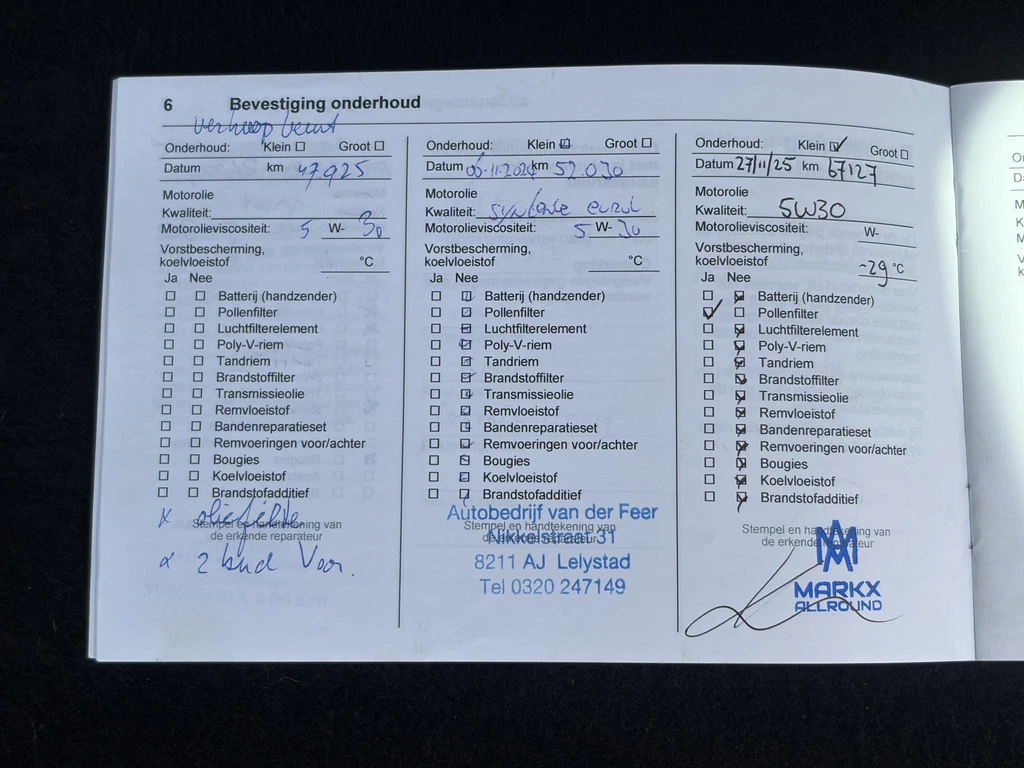 6 Bevestiging onderhoud
verkoop beurt
Onderhoud: Klein Groot
Datum km 47925
Motorolie
Kwaliteit:
Motorolieviscositeit: 5 W- 30
Vorstbescherming,
koelvloeistof °C
Ja Nee
Batterij (handzender)
Pollenfilter
Luchtfilterelement
Poly-V-riem
Tandriem
Brandstoffilter
Transmissieolie
Remvloeistof
Bandenreparatieset
Remvoeringen voor/achter
Bougies
Koelvloeistof
Brandstofadditief
x oliefilter
Stempel en handtekening van
de erkende reparateur
2 band Voor.
Onderhoud: Klein Groot
Datum 06-11-2024 km 52.030
Motorolie
Kwaliteit:
Motorolieviscositeit: 5 W- 30
Vorstbescherming,
koelvloeistof °C
Ja Nee
Batterij (handzender)
Pollenfilter
Luchtfilterelement
Poly-V-riem
Tandriem
Brandstoffilter
Transmissieolie
Remvloeistof
Bandenreparatieset
Remvoeringen voor/achter
Bougies
Koelvloeistof
Brandstofadditief
Autobedrijf van der Feer
Stempel en handtekening van
de erkende reparateur
Nikkelstraat 31
8211 AJ Lelystad
Tel 0320 247149
Onderhoud: Klein Groot
Datum 27/11/25 km 67127
Motorolie
Kwaliteit: 5W30
Motorolieviscositeit: W-
Vorstbescherming,
koelvloeistof -29 °C
Ja Nee
Batterij (handzender)
Pollenfilter
Luchtfilterelement
Poly-V-riem
Tandriem
Brandstoffilter
Transmissieolie
Remvloeistof
Bandenreparatieset
Remvoeringen voor/achter
Bougies
Koelvloeistof
Brandstofadditief
Stempel en handtekening van
de erkende reparateur
MARKX
ALLROUND